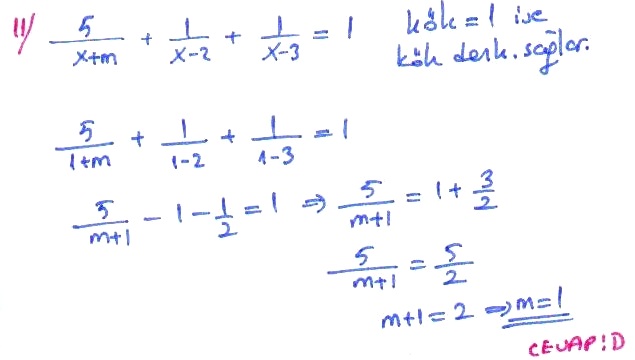 11/ 5/(x+m) + 1/(x-2) + 1/(x-3) = 1 kök=1 ise
kök denk. sağlar.
5/(1+m) + 1/(1-2) + 1/(1-3) = 1
5/(m+1) - 1 - 1/2 = 1 ⇒ 5/(m+1) = 1 + 3/2
5/(m+1) = 5/2
m+1 = 2 ⇒ m=1
CEVAP:D